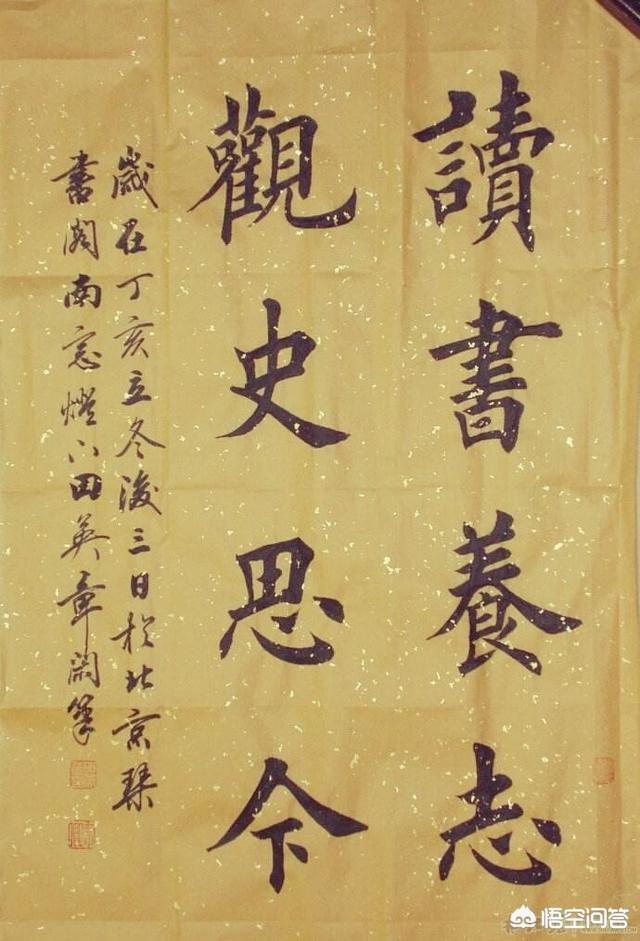 讀書養志
觀史思今
歲在丁亥立冬後三日於北京琹
書閣南窓燈下田英章閑筆
悟空问答